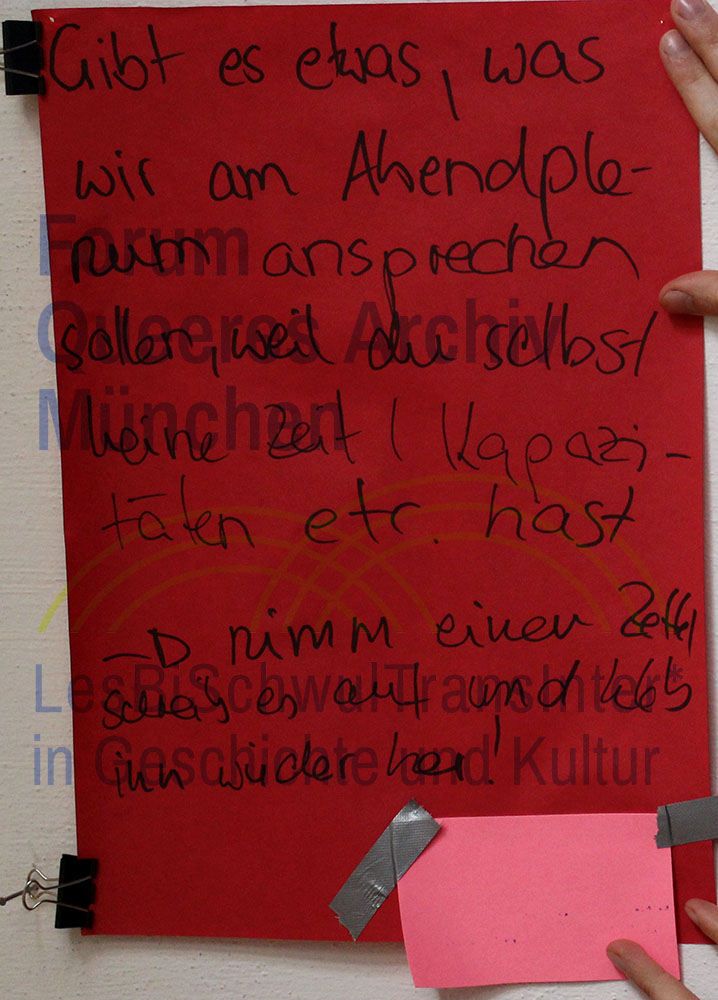 Gibt es etwas, was
wir am Abendple-
num ansprechen
sollen, weil du selbst
keine Zeit / Kapazi-
täten etc. hast
→ nimm einen Zettel
schreib es auf und kleb
ihn wieder her!
Forum
Queeres Archiv
München
LesBiSchwulTransInter*
in Geschichte und Kultur